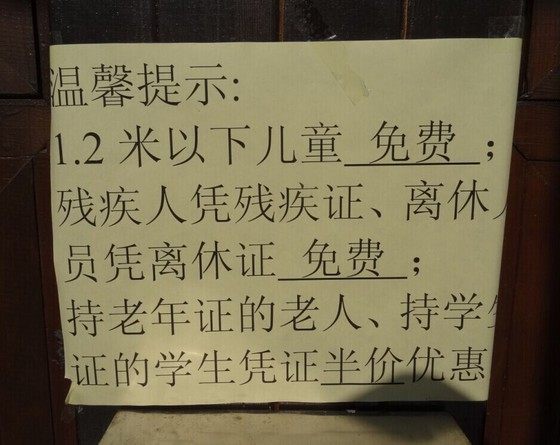 温馨提示:
1.2 米以下儿童 免费 ；
残疾人凭残疾证、离休人
员凭离休证 免费 ；
持老年证的老人、持学生
证的学生凭证半价优惠